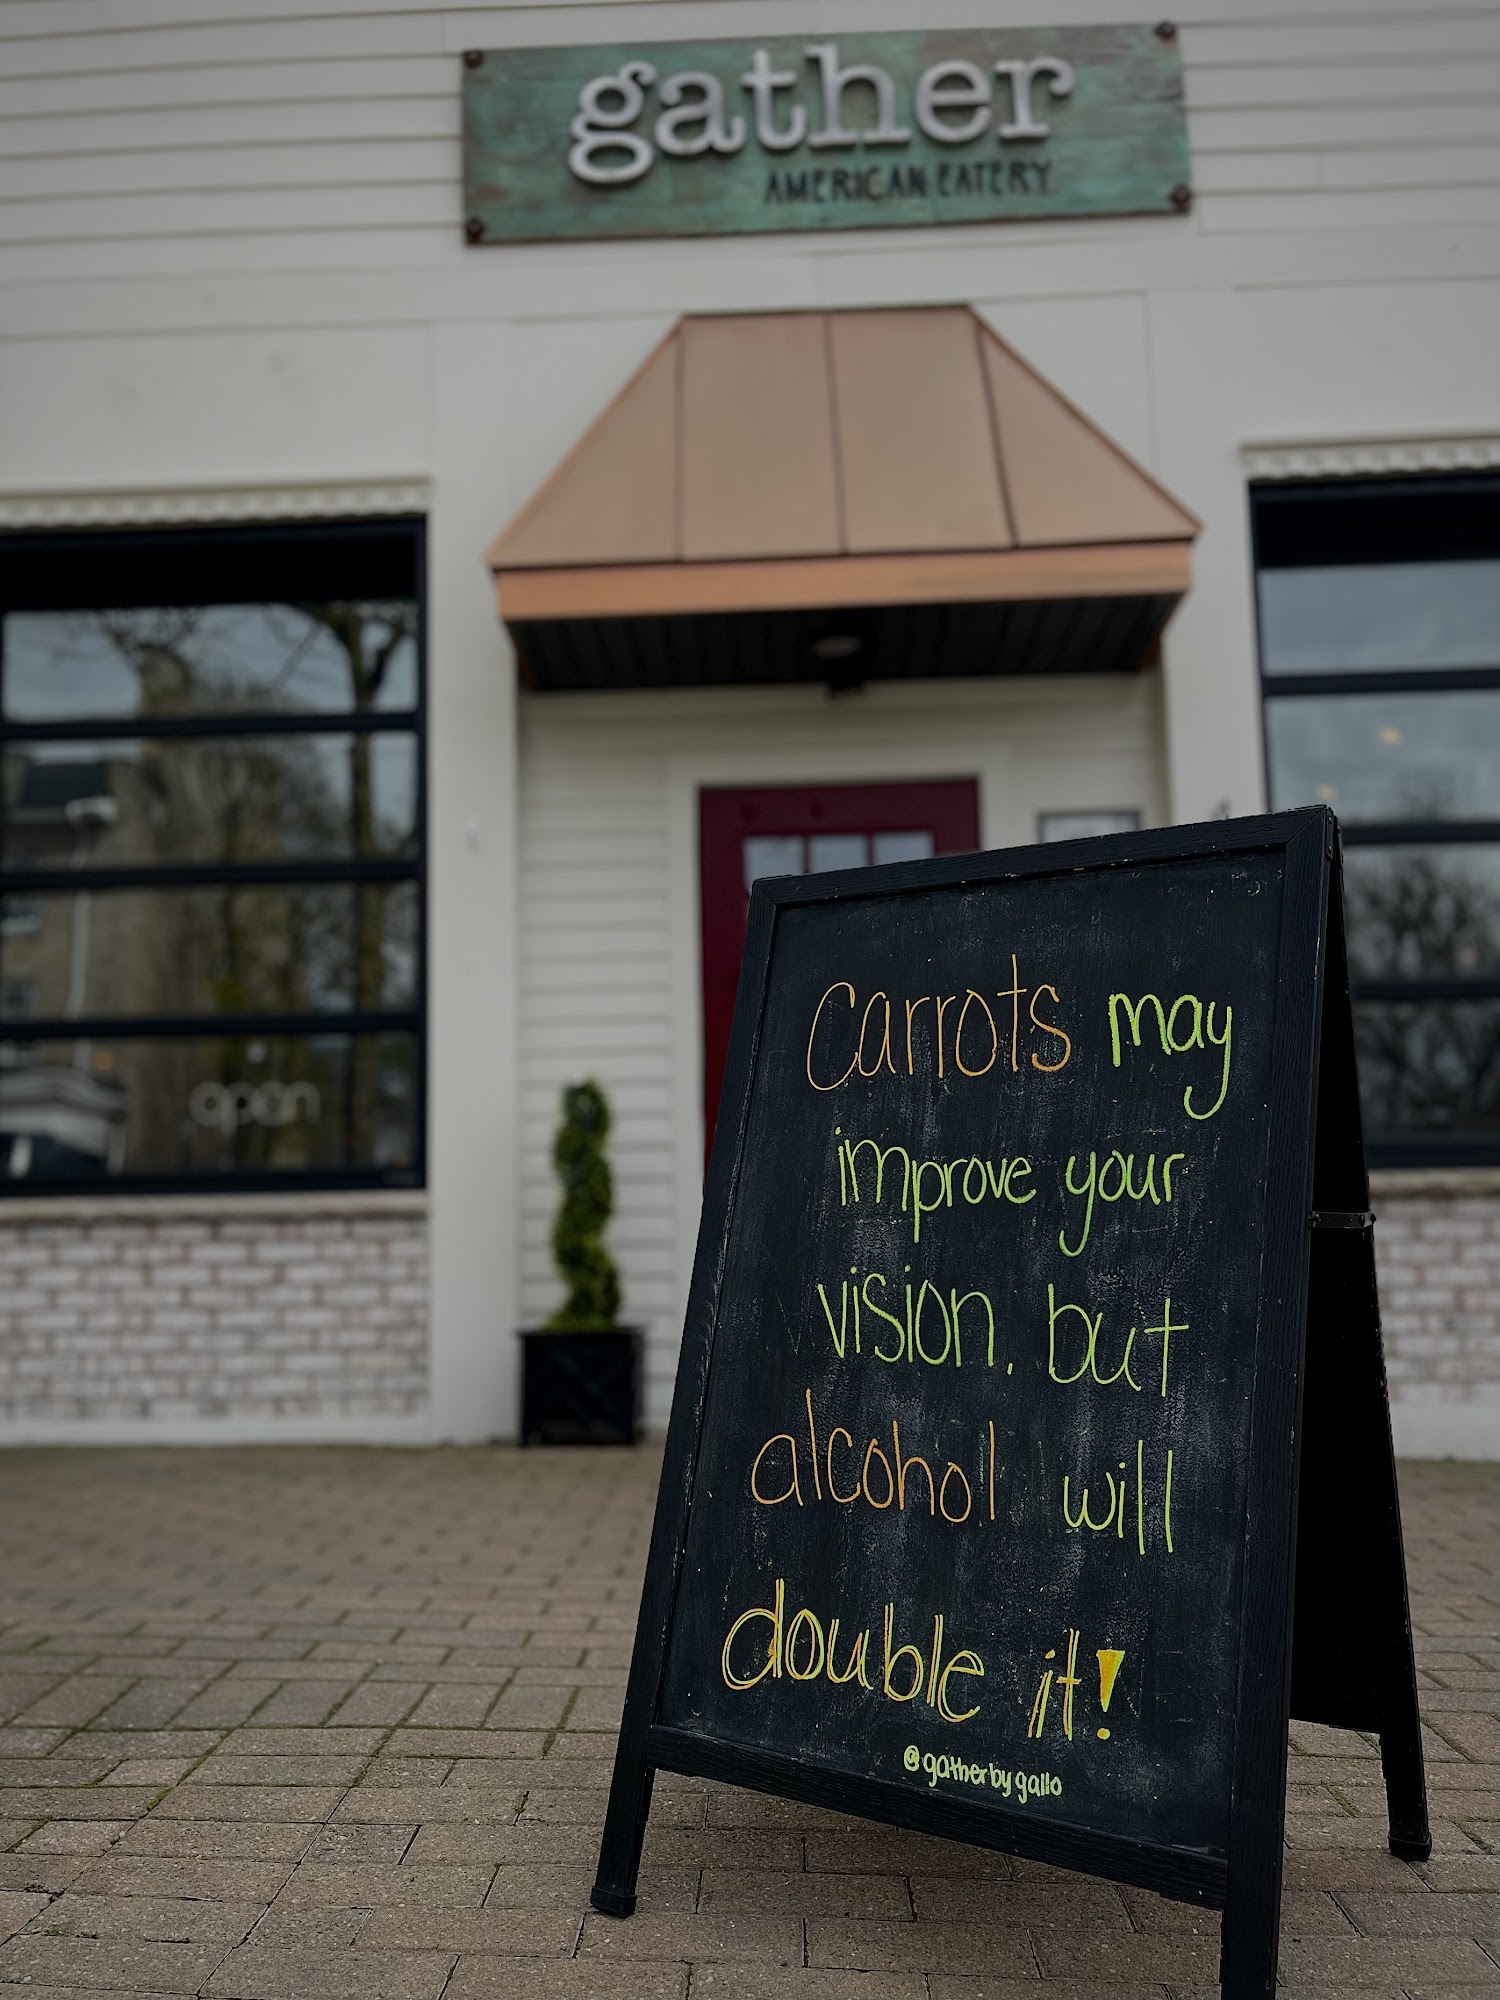 gather
AMERICAN EATERY
open
Carrots may
improve your
vision, but
alcohol will
double it!
@gatherbygallo